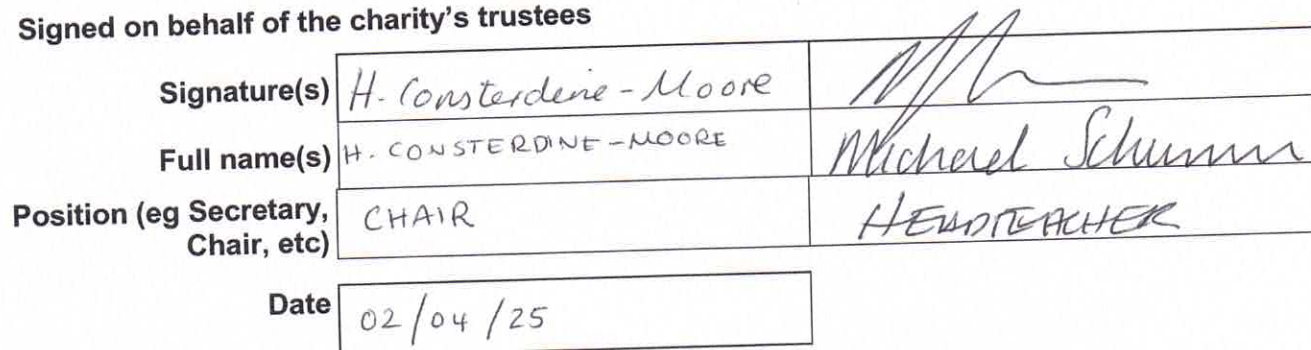 Signed on behalf of the charity's trustees
Signature(s) H. Consterdine-Moore
Full name(s) H. CONSTERDINE-MOORE Michael
Position (eg Secretary, CHAIR HEADTEACHER
Chair, etc)
Date 02/04/25